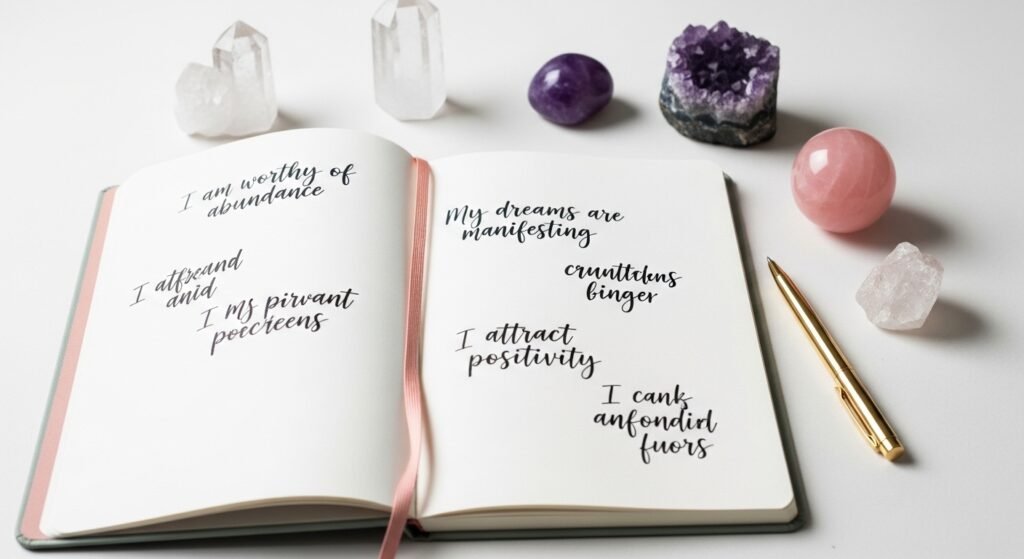 I am worthy of
abundance
I
anid
I my pirvant
poecreens
My dreams are
manifesting
binger
I attract
positivity
I cank
anfondird
fuors